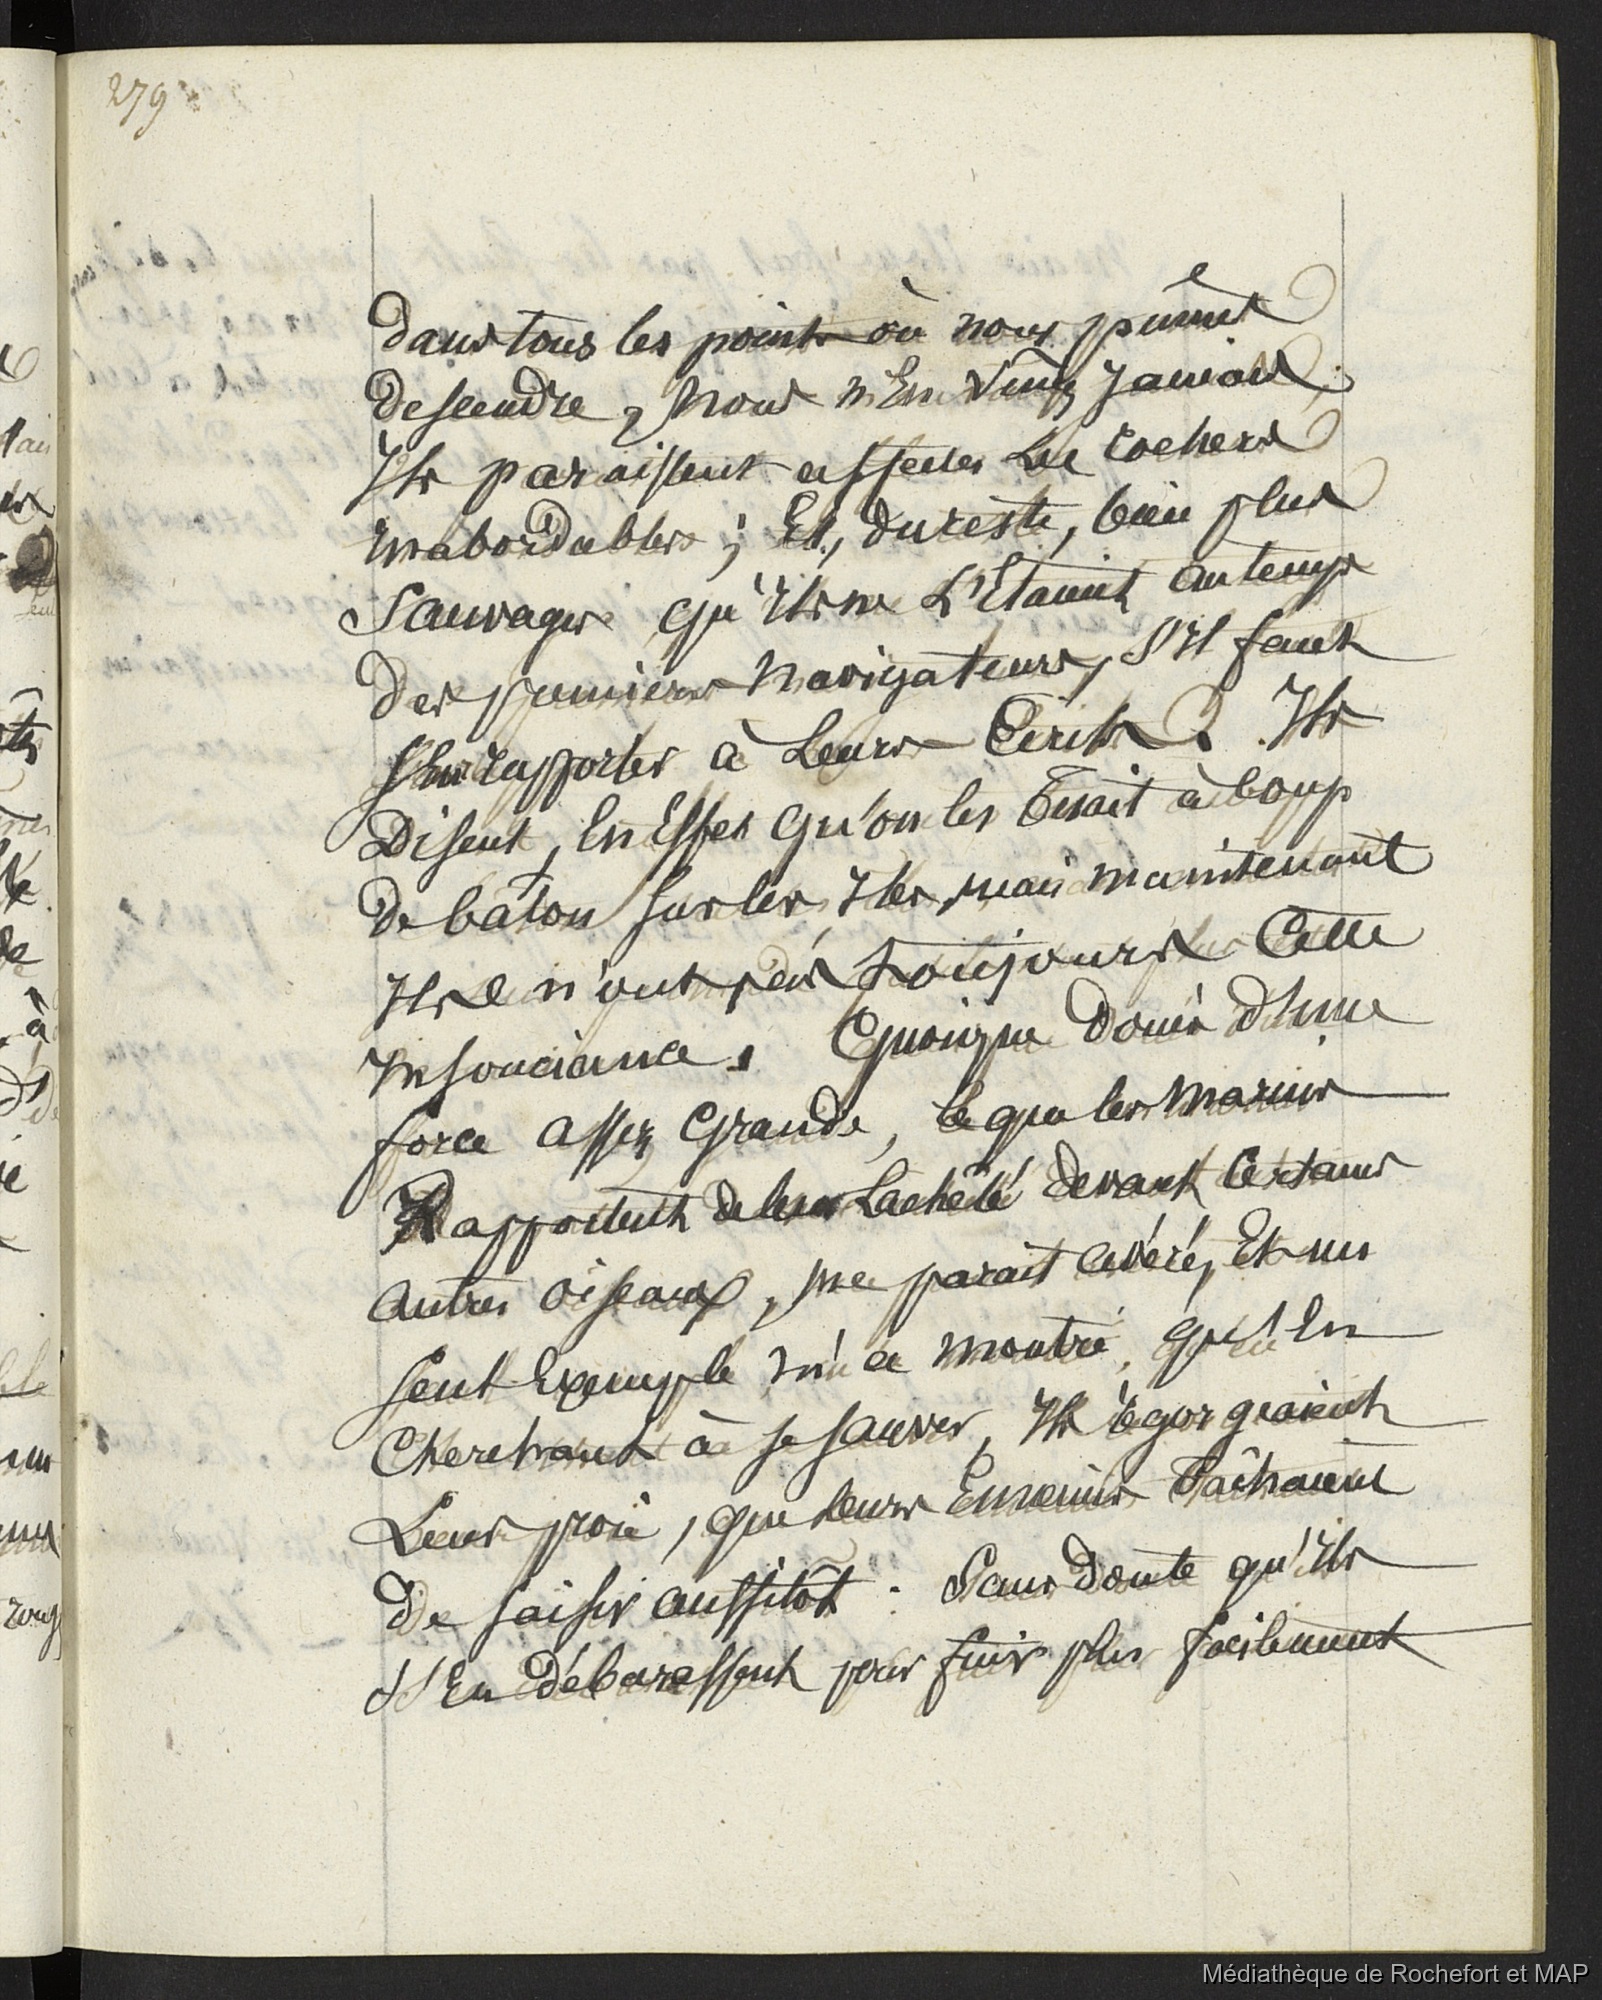 279
dans tous les points où nous pûmes
descendre, nous n'En vîmes Jamais;
Ils paraissent affecter Les rochers
Inabordables; Et, du reste, bien plus
Sauvages qu'Ils ne L'Etaient au temps
des premiers Navigateurs, s'Il faut
s'En rapporter à Leurs Ecrits. Ils
Disent, En Effet qu'on les tuait à coup
de bâton sur les Iles, mais maintenant
Ils n'ont pas toujours Cette
Insouciance. Quoique doués d'Une
force assez Grande, ce que les Marins
Rapportent de leur Lacheté devant Certains
autres oiseaux, me parait avéré, Et un
seul Exemple m'a montré, qu'En
Cherchant à se sauver, Ils égorgeaient
Leur proie, que leurs Ennemis Tâchaient
De saisir aussitôt. Sans doute qu'Ils
s'En débarassent pour fuir plus facilement
Médiathèque de Rochefort et MAP